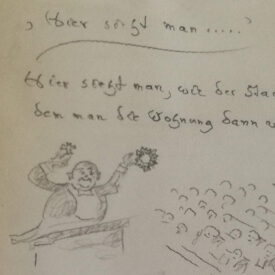 , Hier sieht man.....'
Hier sieht man, wie der
dem man die Wohnung dann